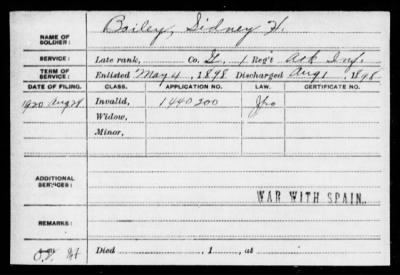 NAME OF SOLDIER: Bailey, Sidney H.
SERVICE: Late rank, Co. G, 1 Reg't Ark Inf.
TERM OF SERVICE: Enlisted May 4, 1898 Discharged Aug 1, 1898
DATE OF FILING. CLASS. APPLICATION NO. LAW. CERTIFICATE NO.
1920 Aug 28 Invalid, 1440200
Widow,
Minor,
ADDITIONAL SERVICES: WAR WITH SPAIN.
REMARKS:
Died , 1 , at